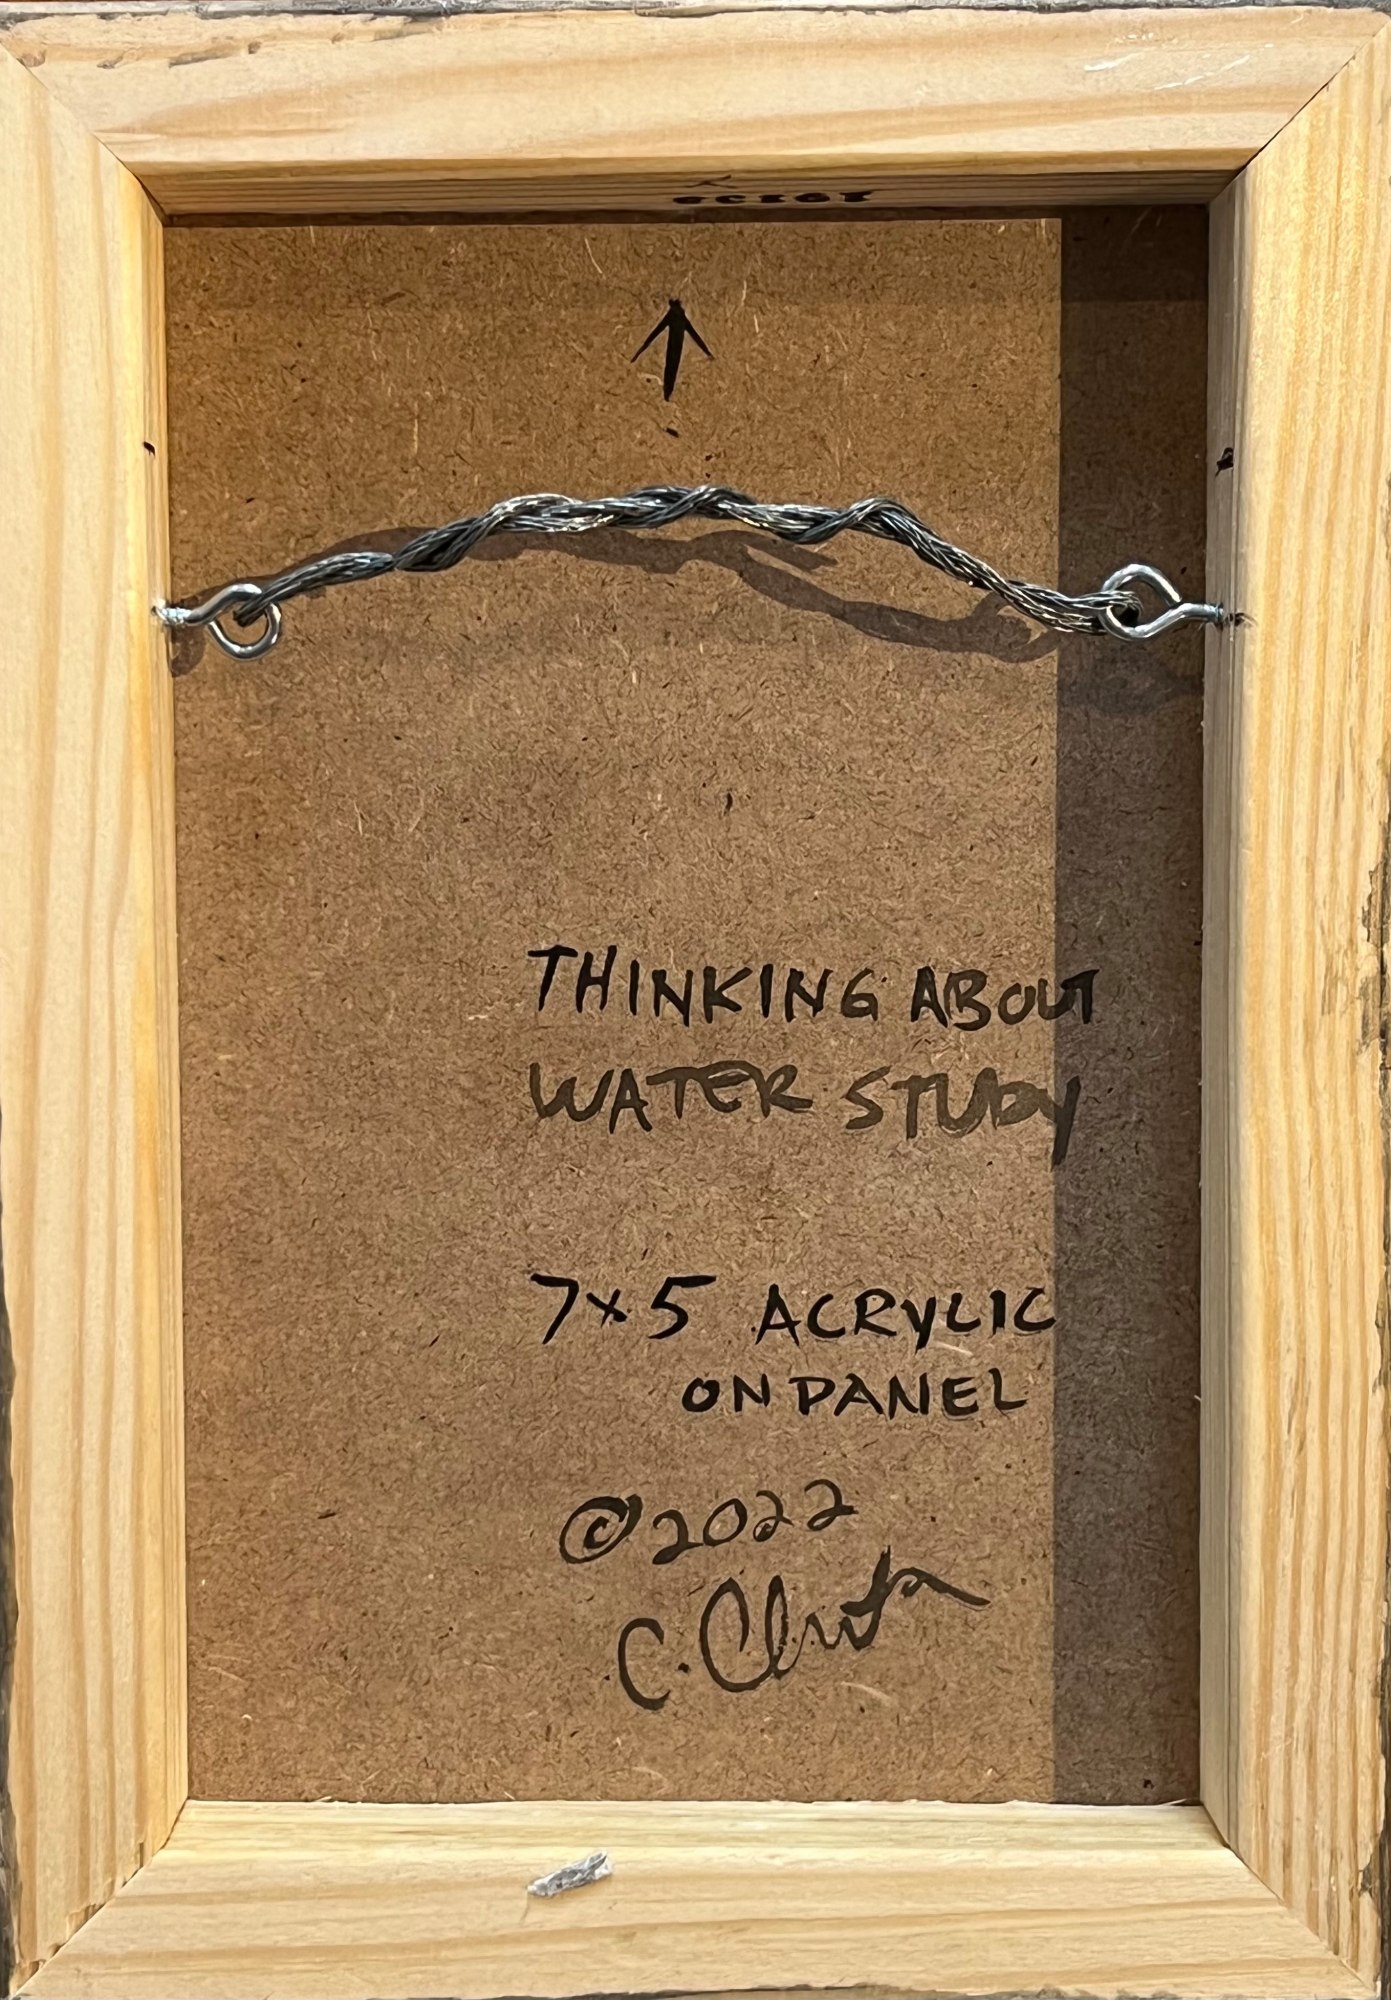 THINKING ABOUT
WATER STUDY
7x5 ACRYLIC
ON PANEL
©2022
C.